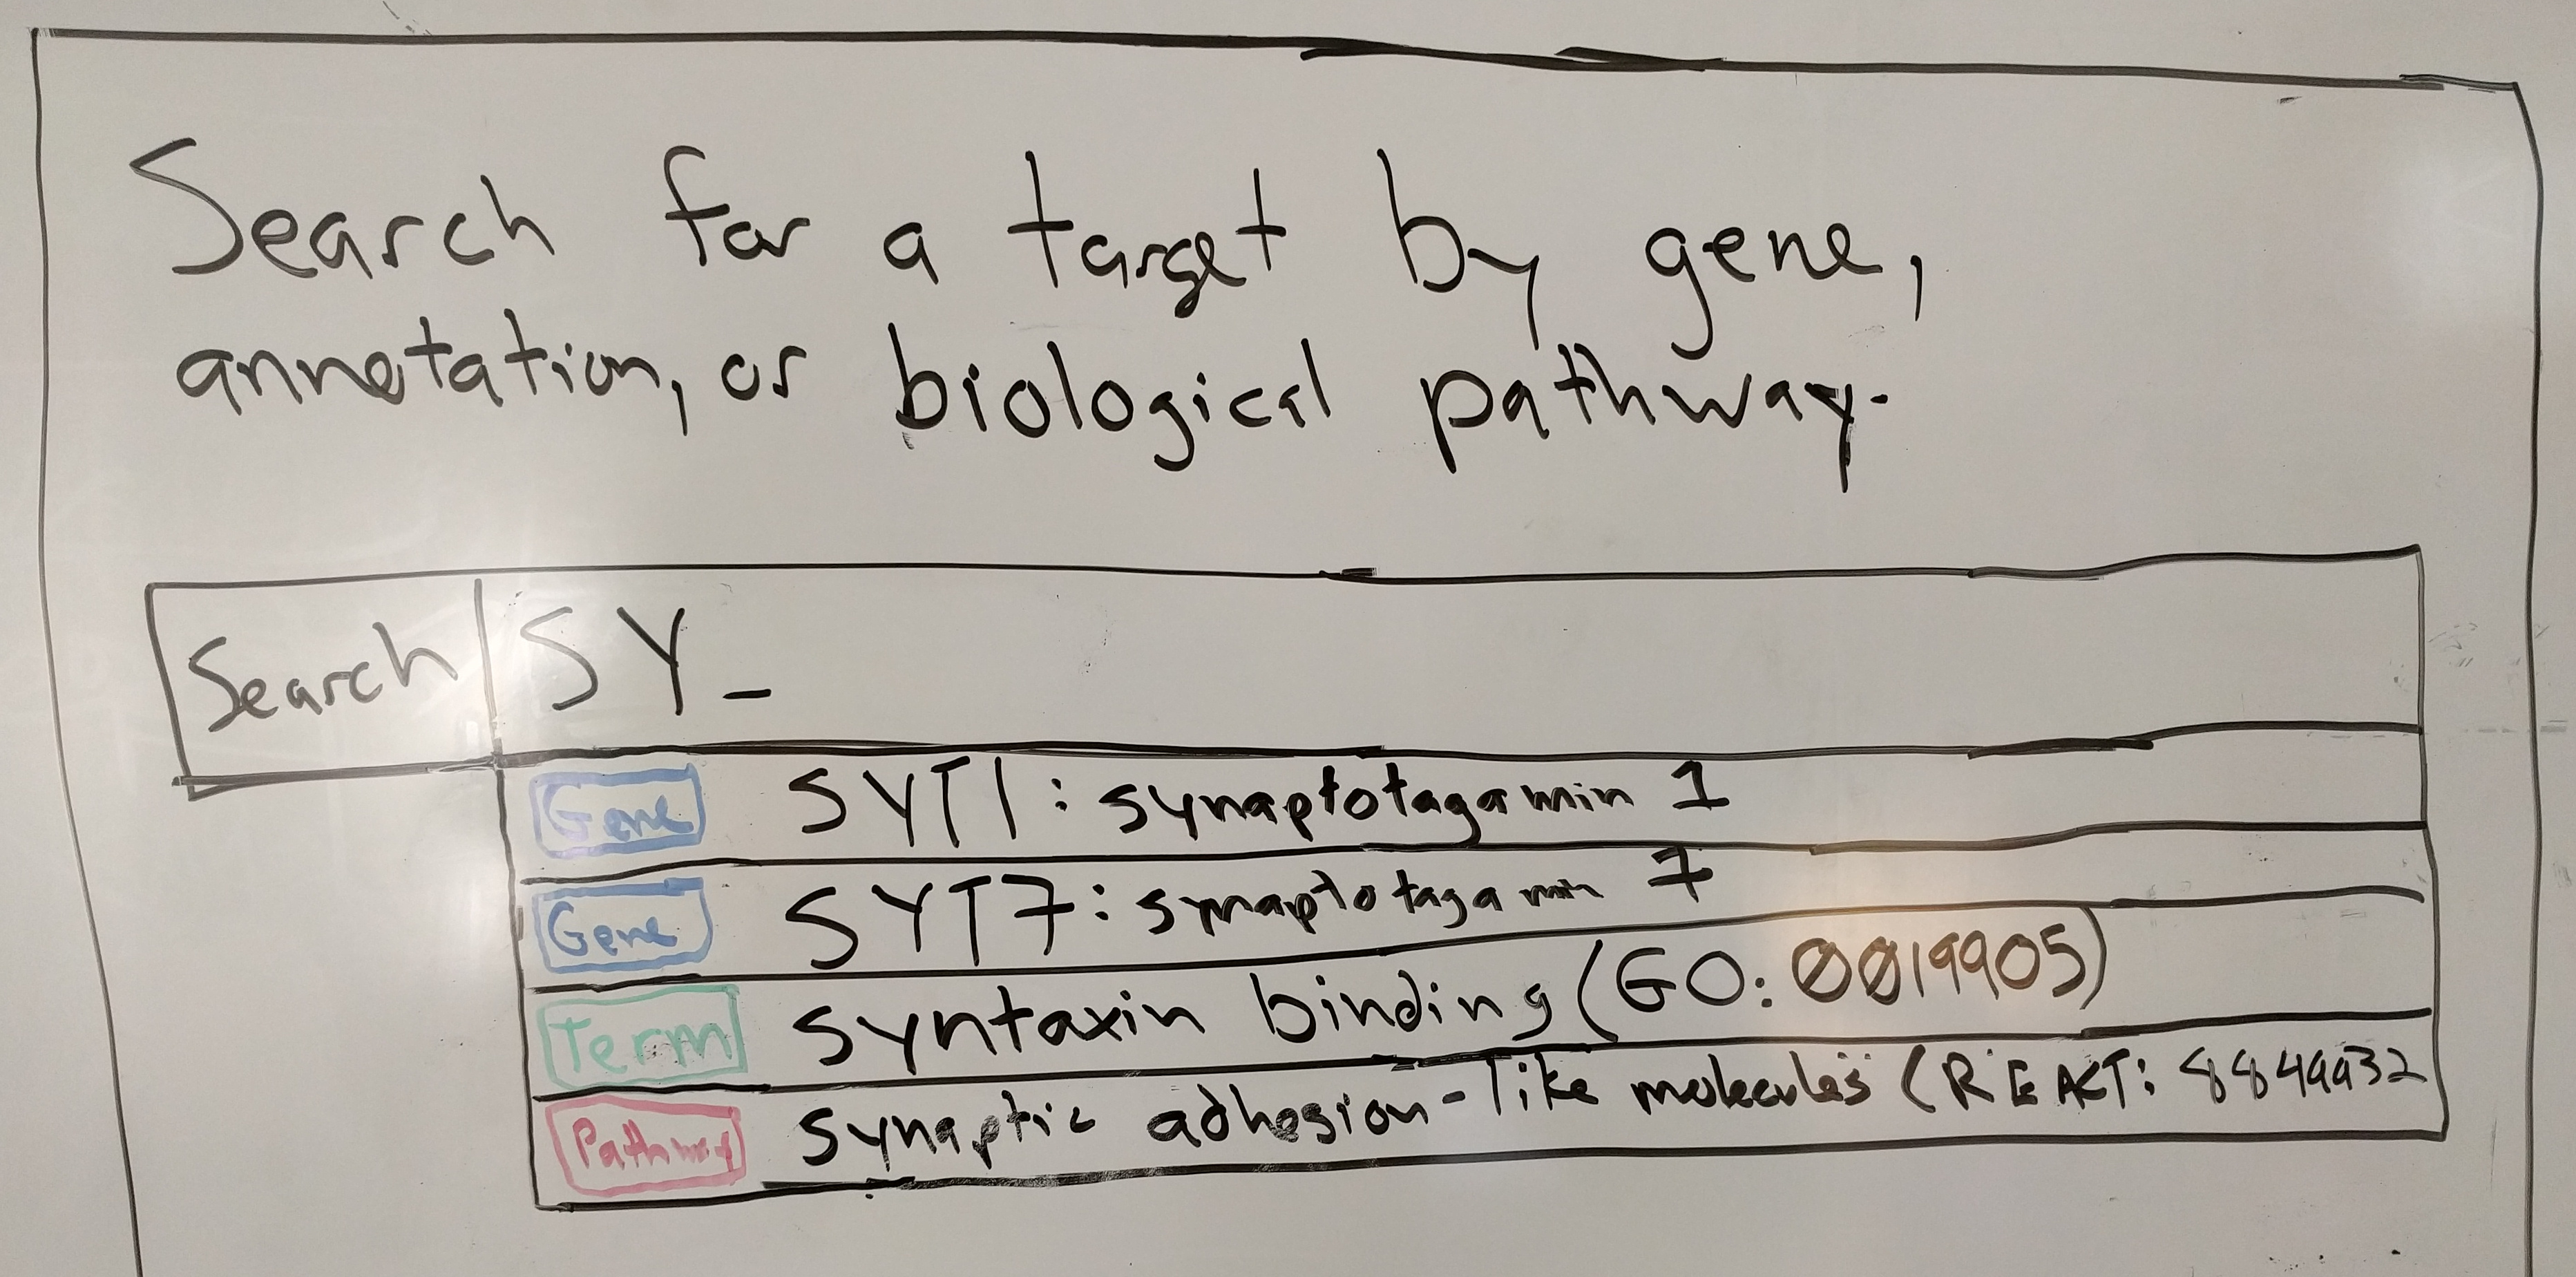 Search for a target by gene,
annotation, or biological pathway.
Search SY_
Gene SYT1: synaptotagamin 1
Gene SYT7: synaptotagamin 7
Term syntaxin binding (GO: 0019905)
Pathway synaptic adhesion-like molecules (REACT: 8849932